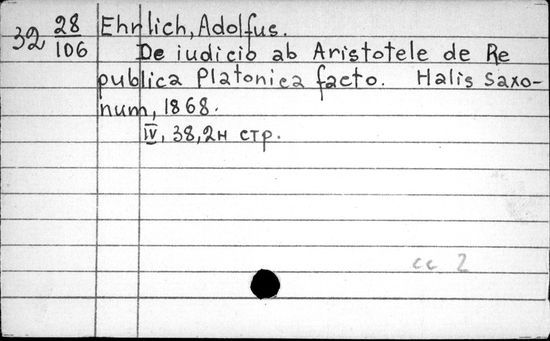 Ehrlich, Adolfus.
32 28/106
De iudicio ab Aristotele de Re
publica Platonica facto. Halis Saxo-
num, 1868.
IV, 38, 2н стр.
cc 2